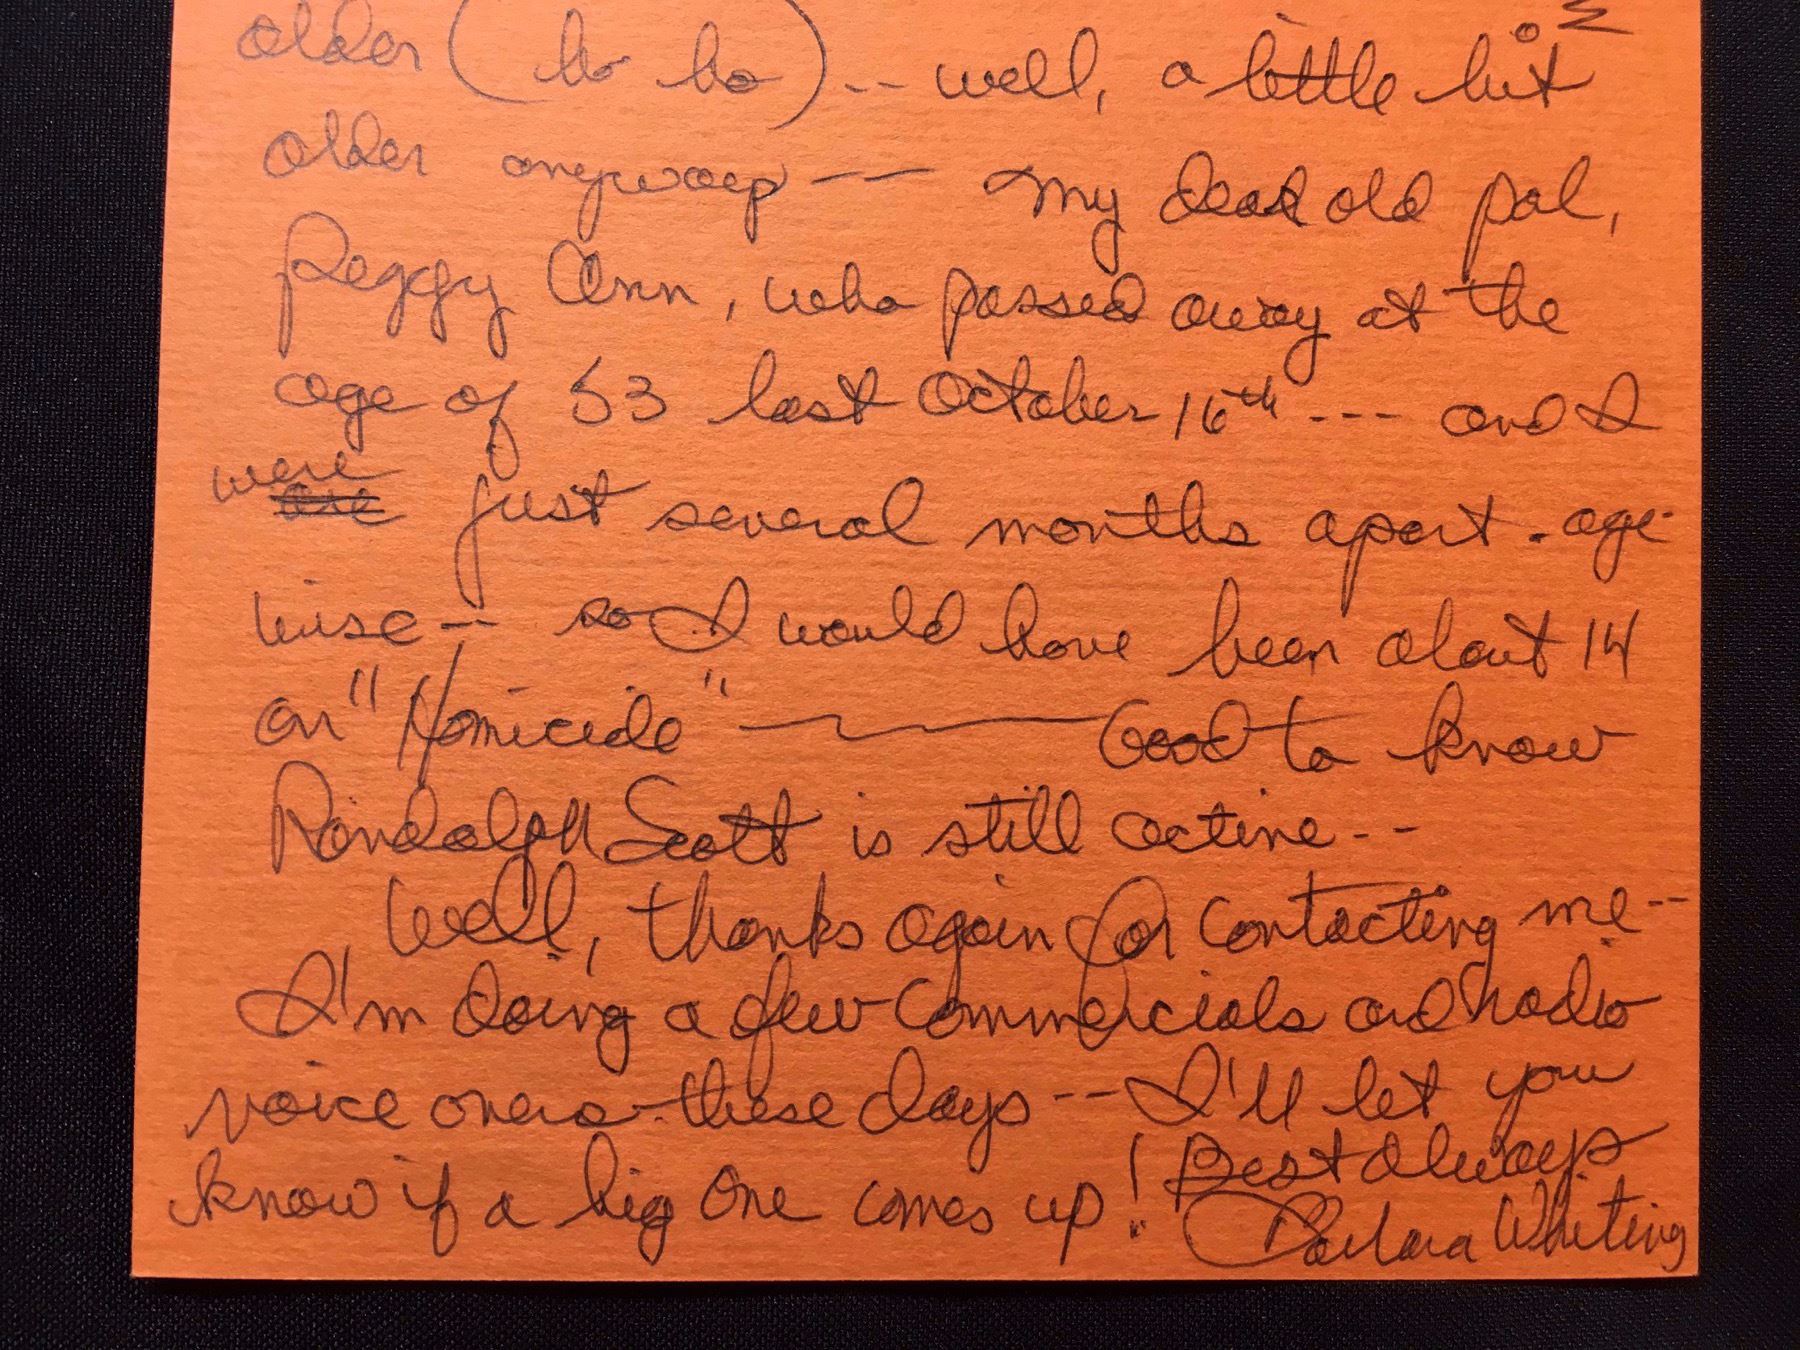 older (ho ho) -- well, a little bit
older anyway -- my dear old pal,
Peggy Ann, who passed away at the
age of 53 last October 16th --- and I
were are just several months apart - age-
wise -- so I would have been about 14
on "Homicide" — Good to know
Randolph Scott is still active --
Well, thanks again for contacting me --
I'm doing a few commercials and radio
voice overs these days -- I'll let you
know if a big one comes up! Best always
Barbara Whiting